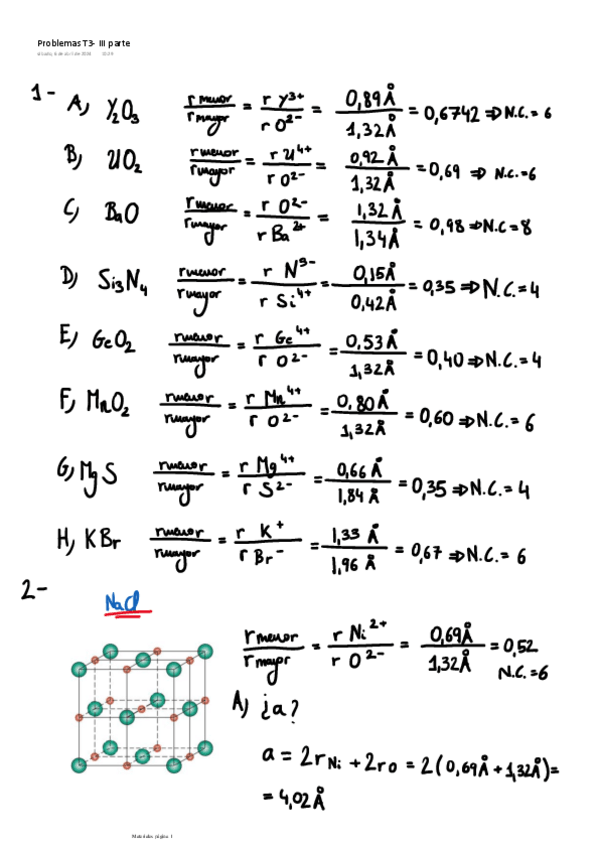 Problemas T3- III parte
1- A) Y2O3 r menor / r mayor = r Y3+ / r O2- = 0,89Å / 1,32Å = 0,6742 ⇒ N.C.= 6
B) UO2 r menor / r mayor = r U4+ / r O2- = 0,92Å / 1,32Å = 0,69 ⇒ N.C.=6
C) BaO r menor / r mayor = r O2- / r Ba2+ = 1,32Å / 1,34Å = 0,98 ⇒ N.C=8
D) Si3N4 r menor / r mayor = r N3- / r Si4+ = 0,15Å / 0,42Å = 0,35 ⇒ N.C.=4
E) GeO2 r menor / r mayor = r Ge4+ / r O2- = 0,53Å / 1,32Å = 0,40 ⇒ N.C.= 4
F) MnO2 r menor / r mayor = r Mn4+ / r O2- = 0,80Å / 1,32Å = 0,60 ⇒ N.C.= 6
G) MgS r menor / r mayor = r Mg4+ / r S2- = 0,66Å / 1,84Å = 0,35 ⇒ N.C.= 4
H) KBr r menor / r mayor = r K+ / r Br- = 1,33Å / 1,96Å = 0,67 ⇒ N.C.= 6
2-
NaCl
r menor / r mayor = r Ni2+ / r O2- = 0,69Å / 1,32Å = 0,52
N.C.=6
A) ¿a?
a = 2rNi + 2rO = 2(0,69Å + 1,32Å)=
= 4,02Å
Materiales página 1